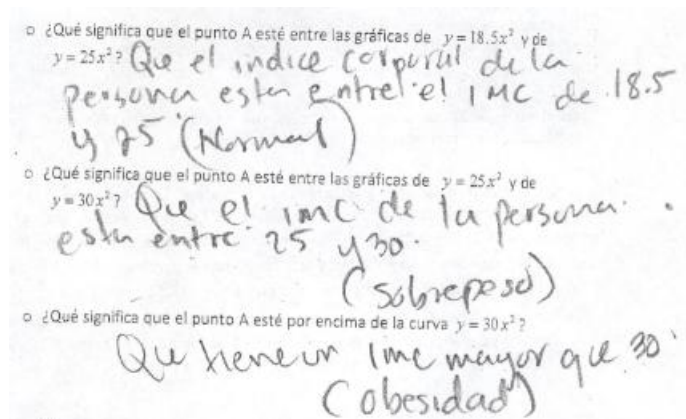 o ¿Qué significa que el punto A esté entre las gráficas de y = 18.5x² y de
y = 25x² ? Que el indice corporal de la
persona esta entre el IMC de 18.5
y 25 (Normal)
o ¿Qué significa que el punto A esté entre las gráficas de y = 25x² y de
y = 30x² ? Que el imc de la persona
esta entre 25 y 30.
(sobrepeso)
o ¿Qué significa que el punto A esté por encima de la curva y = 30x² ?
Que tiene un imc mayor que 30
(obesidad)